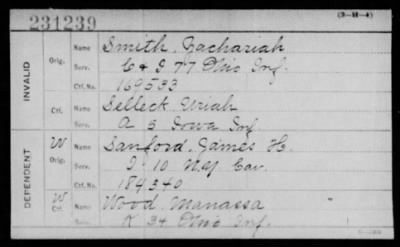 231239
(3-H-4)
INVALID
Orig.
Name Smith, Zachariah
Serv. C & I 77 Ohio Inf.
Ctf. No. 169533
Ctf.
Name Selleck, Uriah
Serv. A 5 Iowa Inf
DEPENDENT
W
Orig.
Name Sanford, James H.
Serv. I 10 N.Y Cav.
Ctf. No. 184340
W
Ctf.
Name Wood, Manassa
Serv. K 34 Ohio Inf.